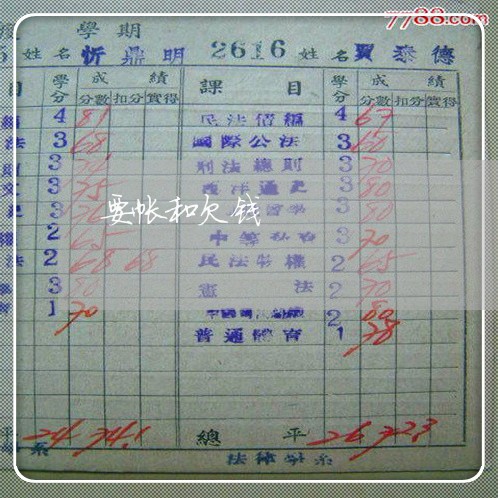 7788.com
學期
姓名 忻鼎明 2616 姓名 賈泰德
目 學分 成績 課目 學分 成績
分數 扣分 實得 分數 扣分 實得
4 81 民法債編 4 67
法 3 68 國際公法 3 60
3 刑法總則 3 70
3 75 3 80
3 3 80
權 2 65 中等 3 70
法 2 68 68 民法物權 2 65
3 80 憲法 2 70
1 70 2 80
普通體育 1 78
要帐和欠钱
平 24 74.1 總平 26 72.3
系 法律學系